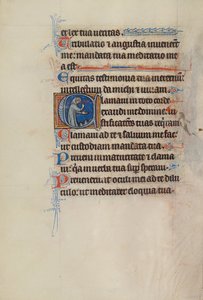 et lex tua veritas.
Tribulatio et angustia invenerunt
me: mandata tua meditatio me
a est.
Equitas testimonia tua in eternum:
intellectum da michi et vivam.
Clamavi in toto corde
exaudi me domine: ius
tificationes tuas requiram
Clamavi ad te salvum me fac:
ut custodiam mandata tua.
Preveni in maturitate et clama
vi: quia in verba tua super speravi.
Prevenerunt oculi mei ad te dilu
culo: ut meditarer eloquia tua